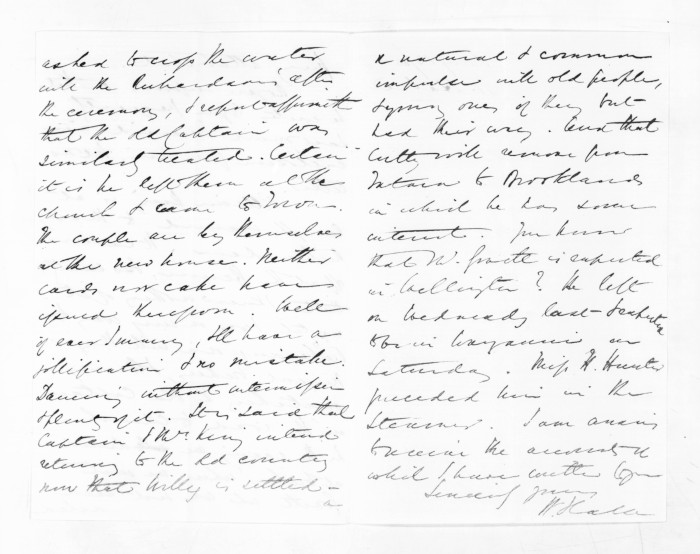 asked to cross the water
with the Richardsons after
the ceremony, & report affirmeth
that the old Captain was
similarly treated. Certain
it is he left them at the
church & came to Town.
The couple are by themselves
at the new house. Neither
cards nor cake have
issued therefrom. Well
if ever I marry, I'll have a
jollification & no mistake.
Dancing without intermission
& plenty of it. It is said that
Captain & Mrs King intend
returning to the old country
now that Willy is settled –
a natural & common
impulse with old people,
& young ones if they but
had their way. And that
Cutty will remove from
to Brooklands
in which he has some
interest. You know
that Mr. is expected
in Wellington? He left
on Wednesday last & expected
to be in Wanganui on
Saturday. Miss H. Hunter
preceded him in the
Steamer. I am anxious
to receive the accounts of
which I have written to you
Sincerely yours
W. Halse